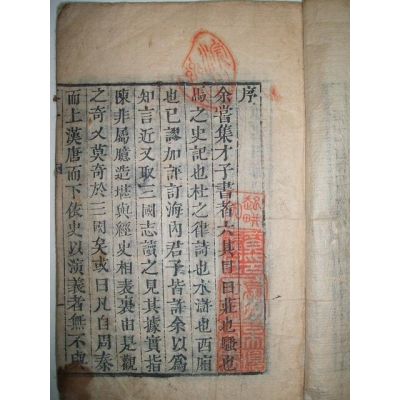 序
余嘗集才子書者六其目曰莊也騷也
馬之史記也杜之律詩也水滸也西廂
也已謬加評訂海內君子皆許余以爲
知言近又取三國志讀之見其據實指
陳非屬臆造堪與經史相表裏由是觀
之奇又莫奇於三國矣或曰凡自周秦
而上漢唐而下依史以演義者無不與